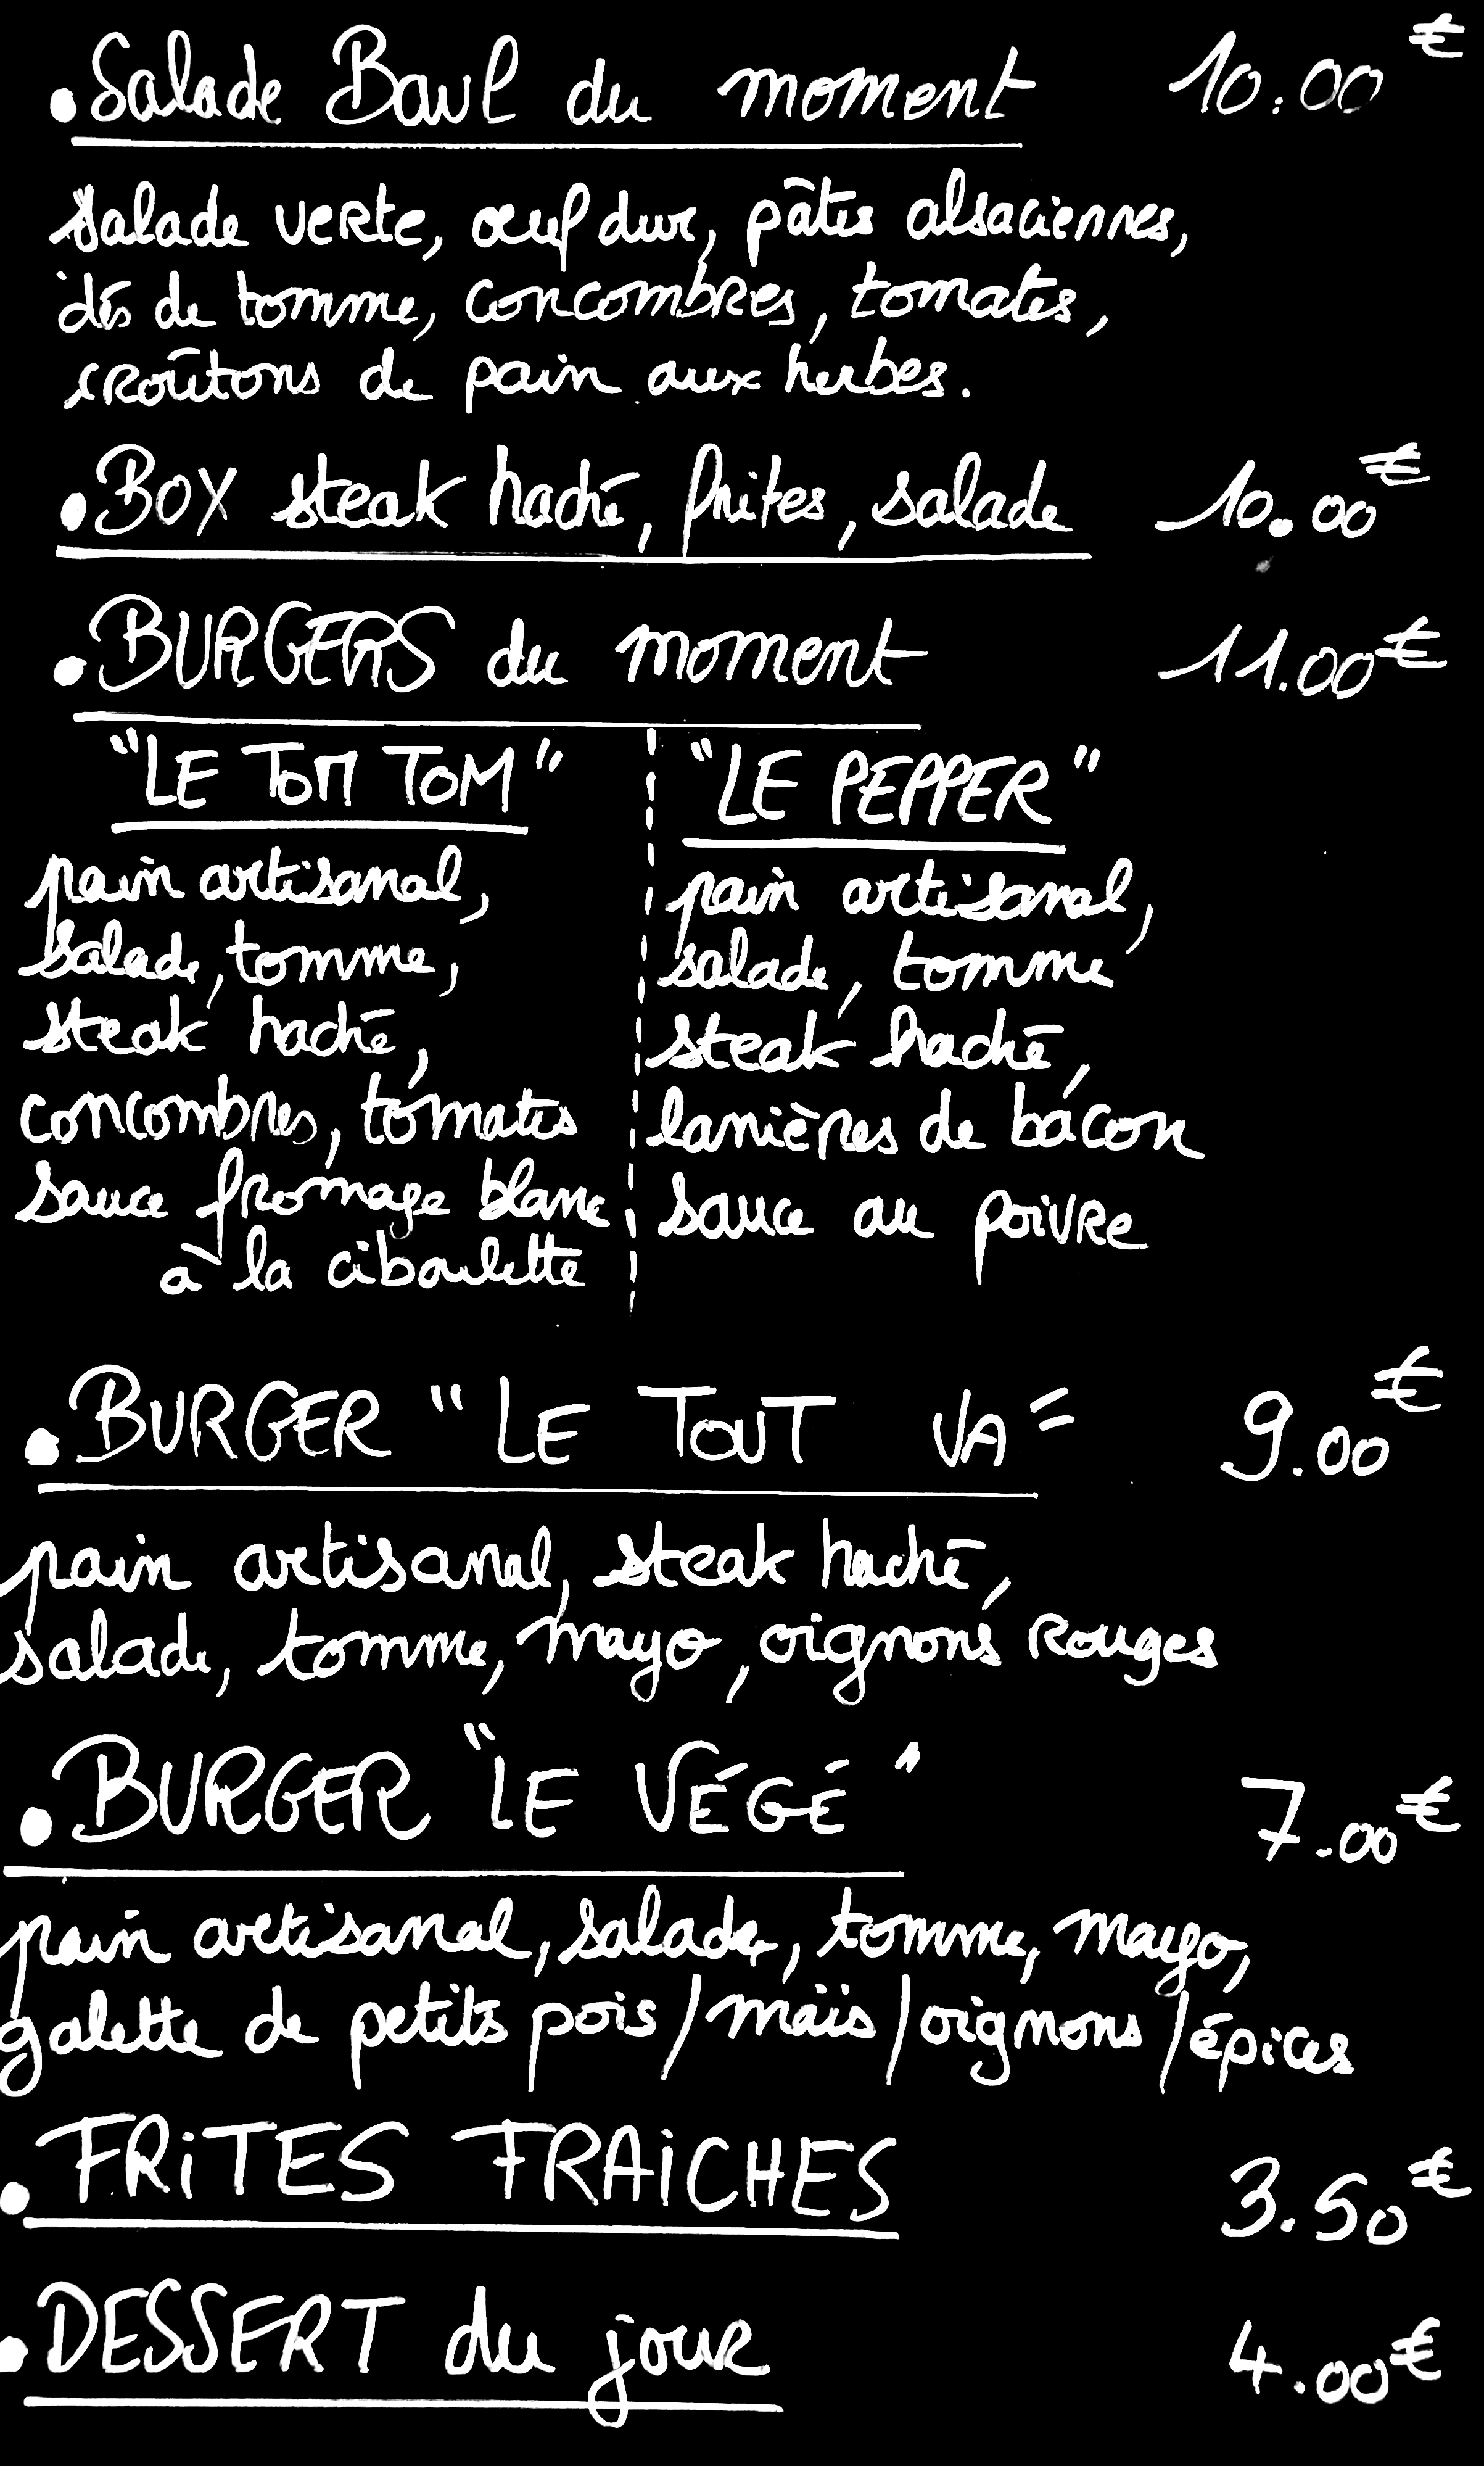 .Salade Bowl du moment 10.00€
salade verte, œuf dur, pâtes alsaciennes,
dés de tomme, concombres, tomates,
croûtons de pain aux herbes.
.BOX steak haché, frites, salade 10.00€
.BURGERS du moment 11.00€
"LE TOM TOM"
pain artisanal,
salade, tomme,
steak haché,
concombres, tomates
sauce fromage blanc
à la ciboulette
"LE PEPPER"
pain artisanal,
salade, tomme
steak haché,
lanières de bacon
sauce au poivre
.BURGER "LE TOUT VA" 9.00€
pain artisanal, steak haché,
salade, tomme, mayo, oignons rouges
.BURGER "LE VÉGÉ" 7.00€
pain artisanal, salade, tomme, mayo,
galette de petits pois/maïs/oignons/épices
.FRITES FRAICHES 3.50€
.DESSERT du jour 4.00€